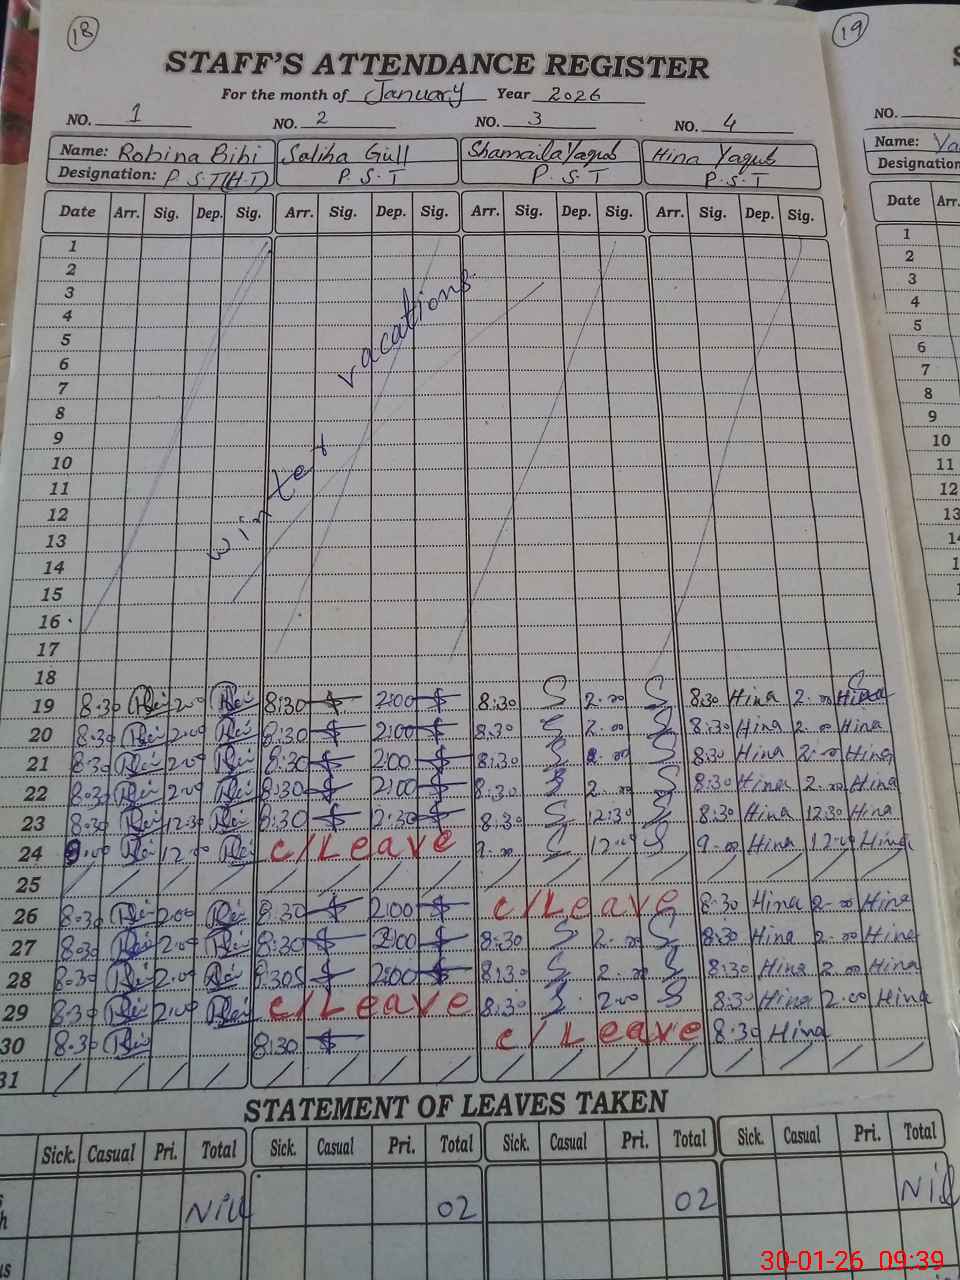 18
19
STAFF'S ATTENDANCE REGISTER
For the month of January Year 2026
NO. 1 NO. 2 NO. 3 NO. 4 NO.
Name: Robina Bibi Saliha Gull Shamaila Yaqub Hina Yaqub Name: Ya
Designation: P.S.T(H.T) P.S.T P.S.T P.S.T Designation
Date Arr. Sig. Dep. Sig. Arr. Sig. Dep. Sig. Arr. Sig. Dep. Sig. Arr. Sig. Dep. Sig. Date Arr.
1 1
2 2
3 3
4 4
5 5
6 6
7 7
8 8
9 9
10 10
11 11
12 12
13 13
14 14
15 1
16
17
winter vacations
18
19 8:30 2:00 8:30 2:00 8:30 S 2:00 S 8:30 Hina 2:00 Hina
20 8:30 2:00 8:30 2:00 8:30 S 2:00 S 8:30 Hina 2:00 Hina
21 8:30 2:00 8:30 2:00 8:30 S 2:00 S 8:30 Hina 2:00 Hina
22 8:30 2:00 8:30 2:00 8:30 S 2:00 S 8:30 Hina 2:00 Hina
23 8:30 12:30 8:30 2:30 8:30 S 12:30 S 8:30 Hina 12:30 Hina
24 9:00 12:00 C/Leave 9:00 S 12:00 S 9:00 Hina 12:00 Hina
25
26 8:30 2:00 8:30 2:00 C/Leave 8:30 Hina 2:00 Hina
27 8:30 2:00 8:30 2:00 8:30 S 2:00 S 8:30 Hina 2:00 Hina
28 8:30 2:00 8:30 2:00 8:30 S 2:00 S 8:30 Hina 2:00 Hina
29 8:30 2:00 C/Leave 8:30 S 2:00 S 8:30 Hina 2:00 Hina
30 8:30 8:30 C/Leave 8:30 Hina
31
STATEMENT OF LEAVES TAKEN
Sick. Casual Pri. Total Sick. Casual Pri. Total Sick. Casual Pri. Total Sick. Casual Pri. Total
Nill 02 02 Nill
30-01-26 09:39